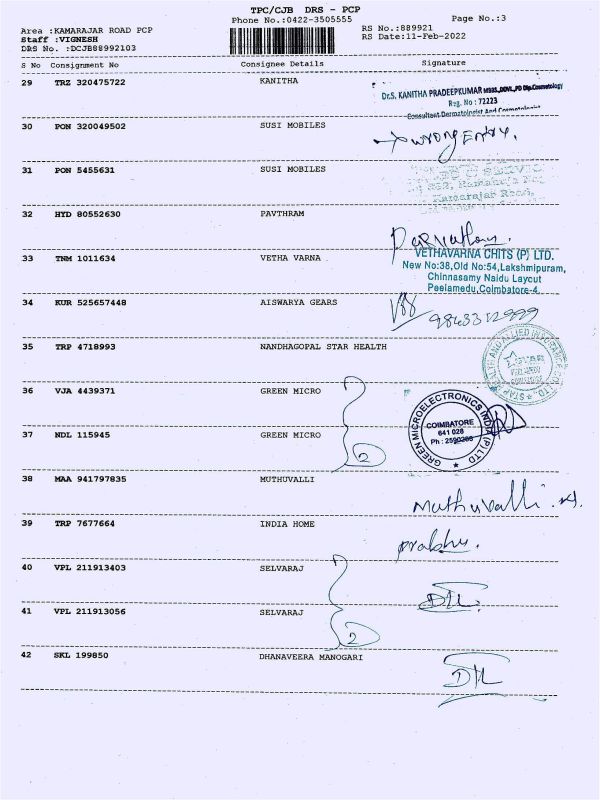 TPC/CJB DRS - PCP
Phone No.:0422-3505555 Page No.:3
Area :KAMARAJAR ROAD PCP RS No.:889921
Staff :VIGNESH RS Date:11-Feb-2022
DRS No. :DCJB88992103
S No Consignment No Consignee Details Signature
29 TRZ 320475722 KANITHA
Dr.S. KANITHA PRADEEPKUMAR MBBS.,DDVL.,PD Dip.Cosmetology
Reg. No : 72223
Consultant Dermatologist And Cosmetologist
30 PON 320049502 SUSI MOBILES
wrong Entry.
31 PON 5455631 SUSI MOBILES
Kamarajar Road,
32 HYD 80552630 PAVTHRAM
33 TNM 1011634 VETHA VARNA
VETHAVARNA CHITS (P) LTD.
New No:38,Old No:54,Lakshmipuram,
Chinnasamy Naidu Layout
Peelamedu,Coimbatore-4.
34 KUR 525657448 AISWARYA GEARS
35 TRP 4718993 NANDHAGOPAL STAR HEALTH
STAR HEALTH AND ALLIED INSURANCE CO. LTD.
36 VJA 4439371 GREEN MICRO
GREEN MICROELECTRONICS INDIA (P) LTD
COIMBATORE
641 028
37 NDL 115945 GREEN MICRO
2
38 MAA 941797835 MUTHUVALLI
Muthuvalli
39 TRP 7677664 INDIA HOME
prabhu.
40 VPL 211913403 SELVARAJ
41 VPL 211913056 SELVARAJ
2
42 SKL 199850 DHANAVEERA MANOGARI